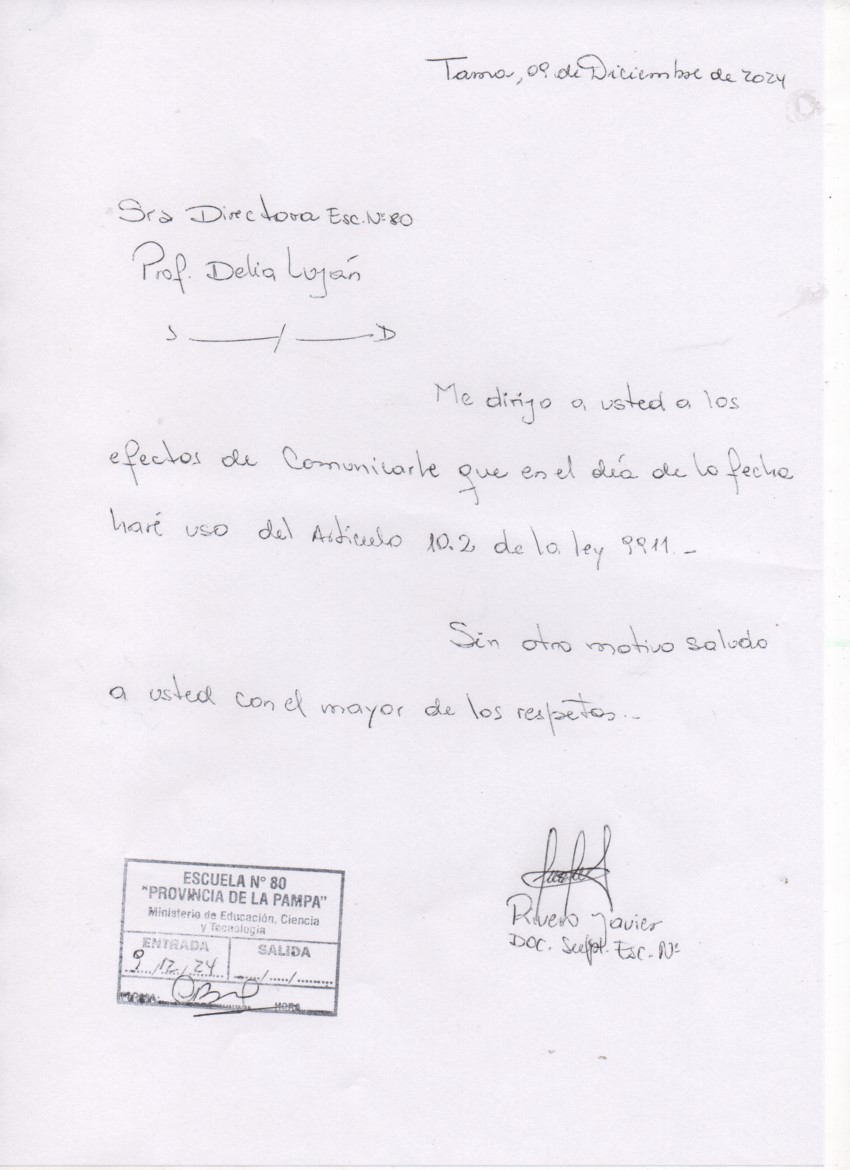 Tama, 09 de Diciembre de 2024
Sra Directora Esc. Nº 80
Prof. Delia Luján
S ——/—— D
Me dirijo a usted a los
efectos de Comunicarle que en el día de la fecha
haré uso del Artículo 10.2 de la ley 9911.-
Sin otro motivo saludo
a usted con el mayor de los respetos.-
Rivero Javier
DOC. Supl. Esc. Nº
ESCUELA N° 80
"PROVINCIA DE LA PAMPA"
Ministerio de Educación, Ciencia
y Tecnología
ENTRADA SALIDA
9/12/24 ..../..../....
FIRMA: HORA